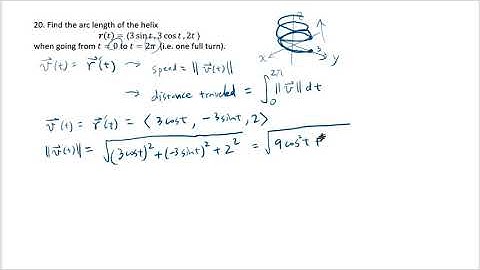 20. Find the arc length of the helix
r(t) = (3 sin t, 3 cos t, 2t)
when going from t = 0 to t = 2π (i.e. one full turn).
z
x
3
y
v⃗(t) = r⃗'(t) → speed = ||v⃗(t)||
→ distance traveled = ∫₀^2π ||v⃗|| dt
v⃗(t) = r⃗'(t) = ⟨3cost, -3sint, 2⟩
||v⃗(t)|| = √((3cost)² + (-3sint)² + 2²) = √(9cos²t +